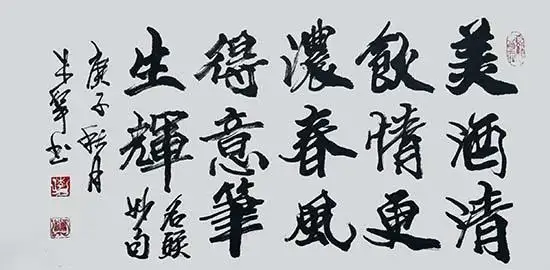 美酒清
飲情更
濃春風
得意筆
生輝
名联
妙句
庚子秋月
书